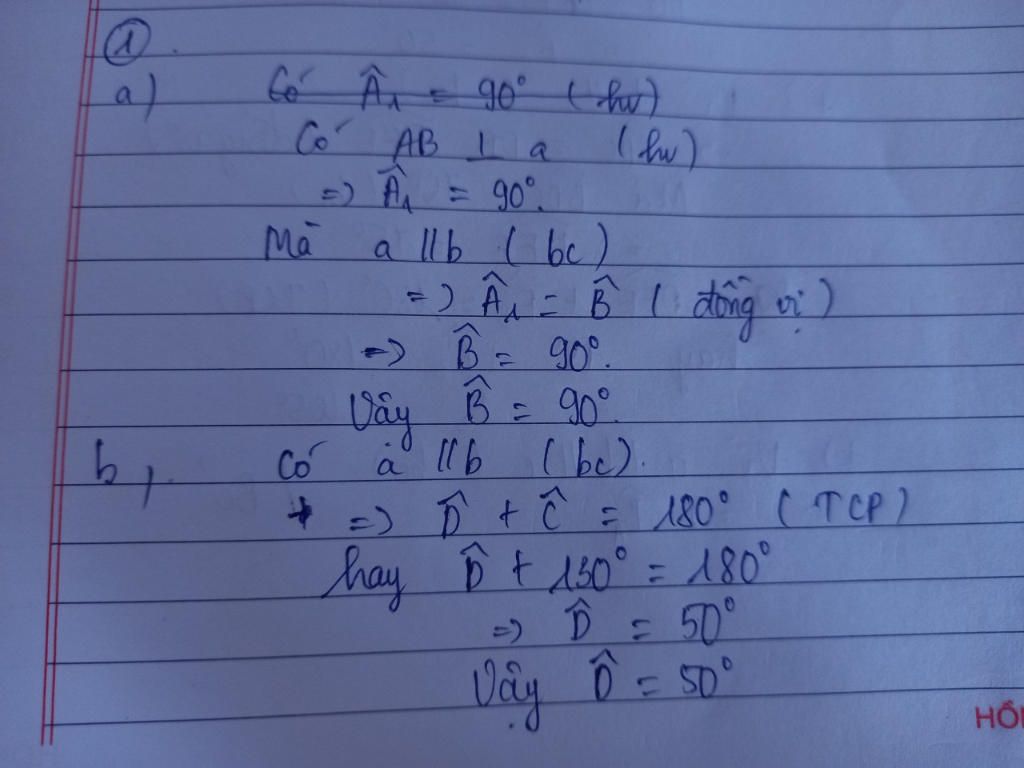 ①.
a) Có Â₁ = 90° (hv)
Có AB ⊥ a (hv)
=> Â₁ = 90°.
Mà a // b (bc)
=> Â₁ = B̂ (đồng vị)
=> B̂ = 90°.
Vậy B̂ = 90°.
b, Có a // b (bc).
=> D̂ + Ĉ = 180° (TCP)
hay D̂ + 130° = 180°
=> D̂ = 50°
Vậy D̂ = 50°